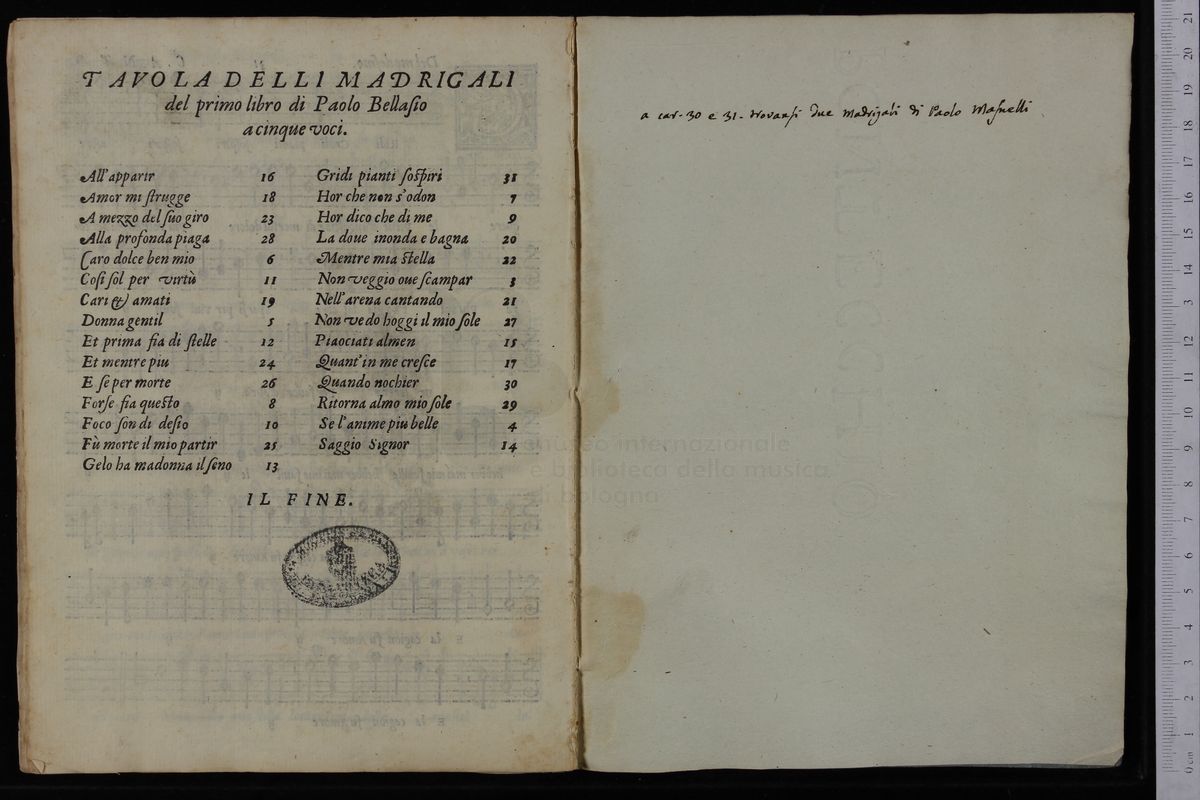 TAVOLA DELLI MADRIGALI
del primo libro di Paolo Bellaſio
a cinque voci.
All'apparir 16
Amor mi ſtrugge 18
A mezzo del ſuo giro 23
Alla profonda piaga 28
Caro dolce ben mio 6
Coſi ſol per virtù 11
Cari & amati 19
Donna gentil 5
Et prima fia di ſtelle 12
Et mentre piu 24
E ſe per morte 26
Forſe fia queſto 8
Foco ſon di deſio 10
Fù morte il mio partir 25
Gelo ha madonna il ſeno 13
Gridi pianti ſoſpiri 31
Hor che non s'odon 7
Hor dico che di me 9
La doue inonda e bagna 20
Mentre mia ſtella 22
Non veggio oue ſcampar 3
Nell'arena cantando 21
Non vedo hoggi il mio ſole 27
Piaociati almen 15
Quant'in me creſce 17
Quando nochier 30
Ritorna almo mio ſole 29
Se l'anime piu belle 4
Saggio Signor 14
IL FINE.
a car. 30 e 31. trovansi due Madrigali di Paolo Masnelli
museo internazionale
e biblioteca della musica
di bologna